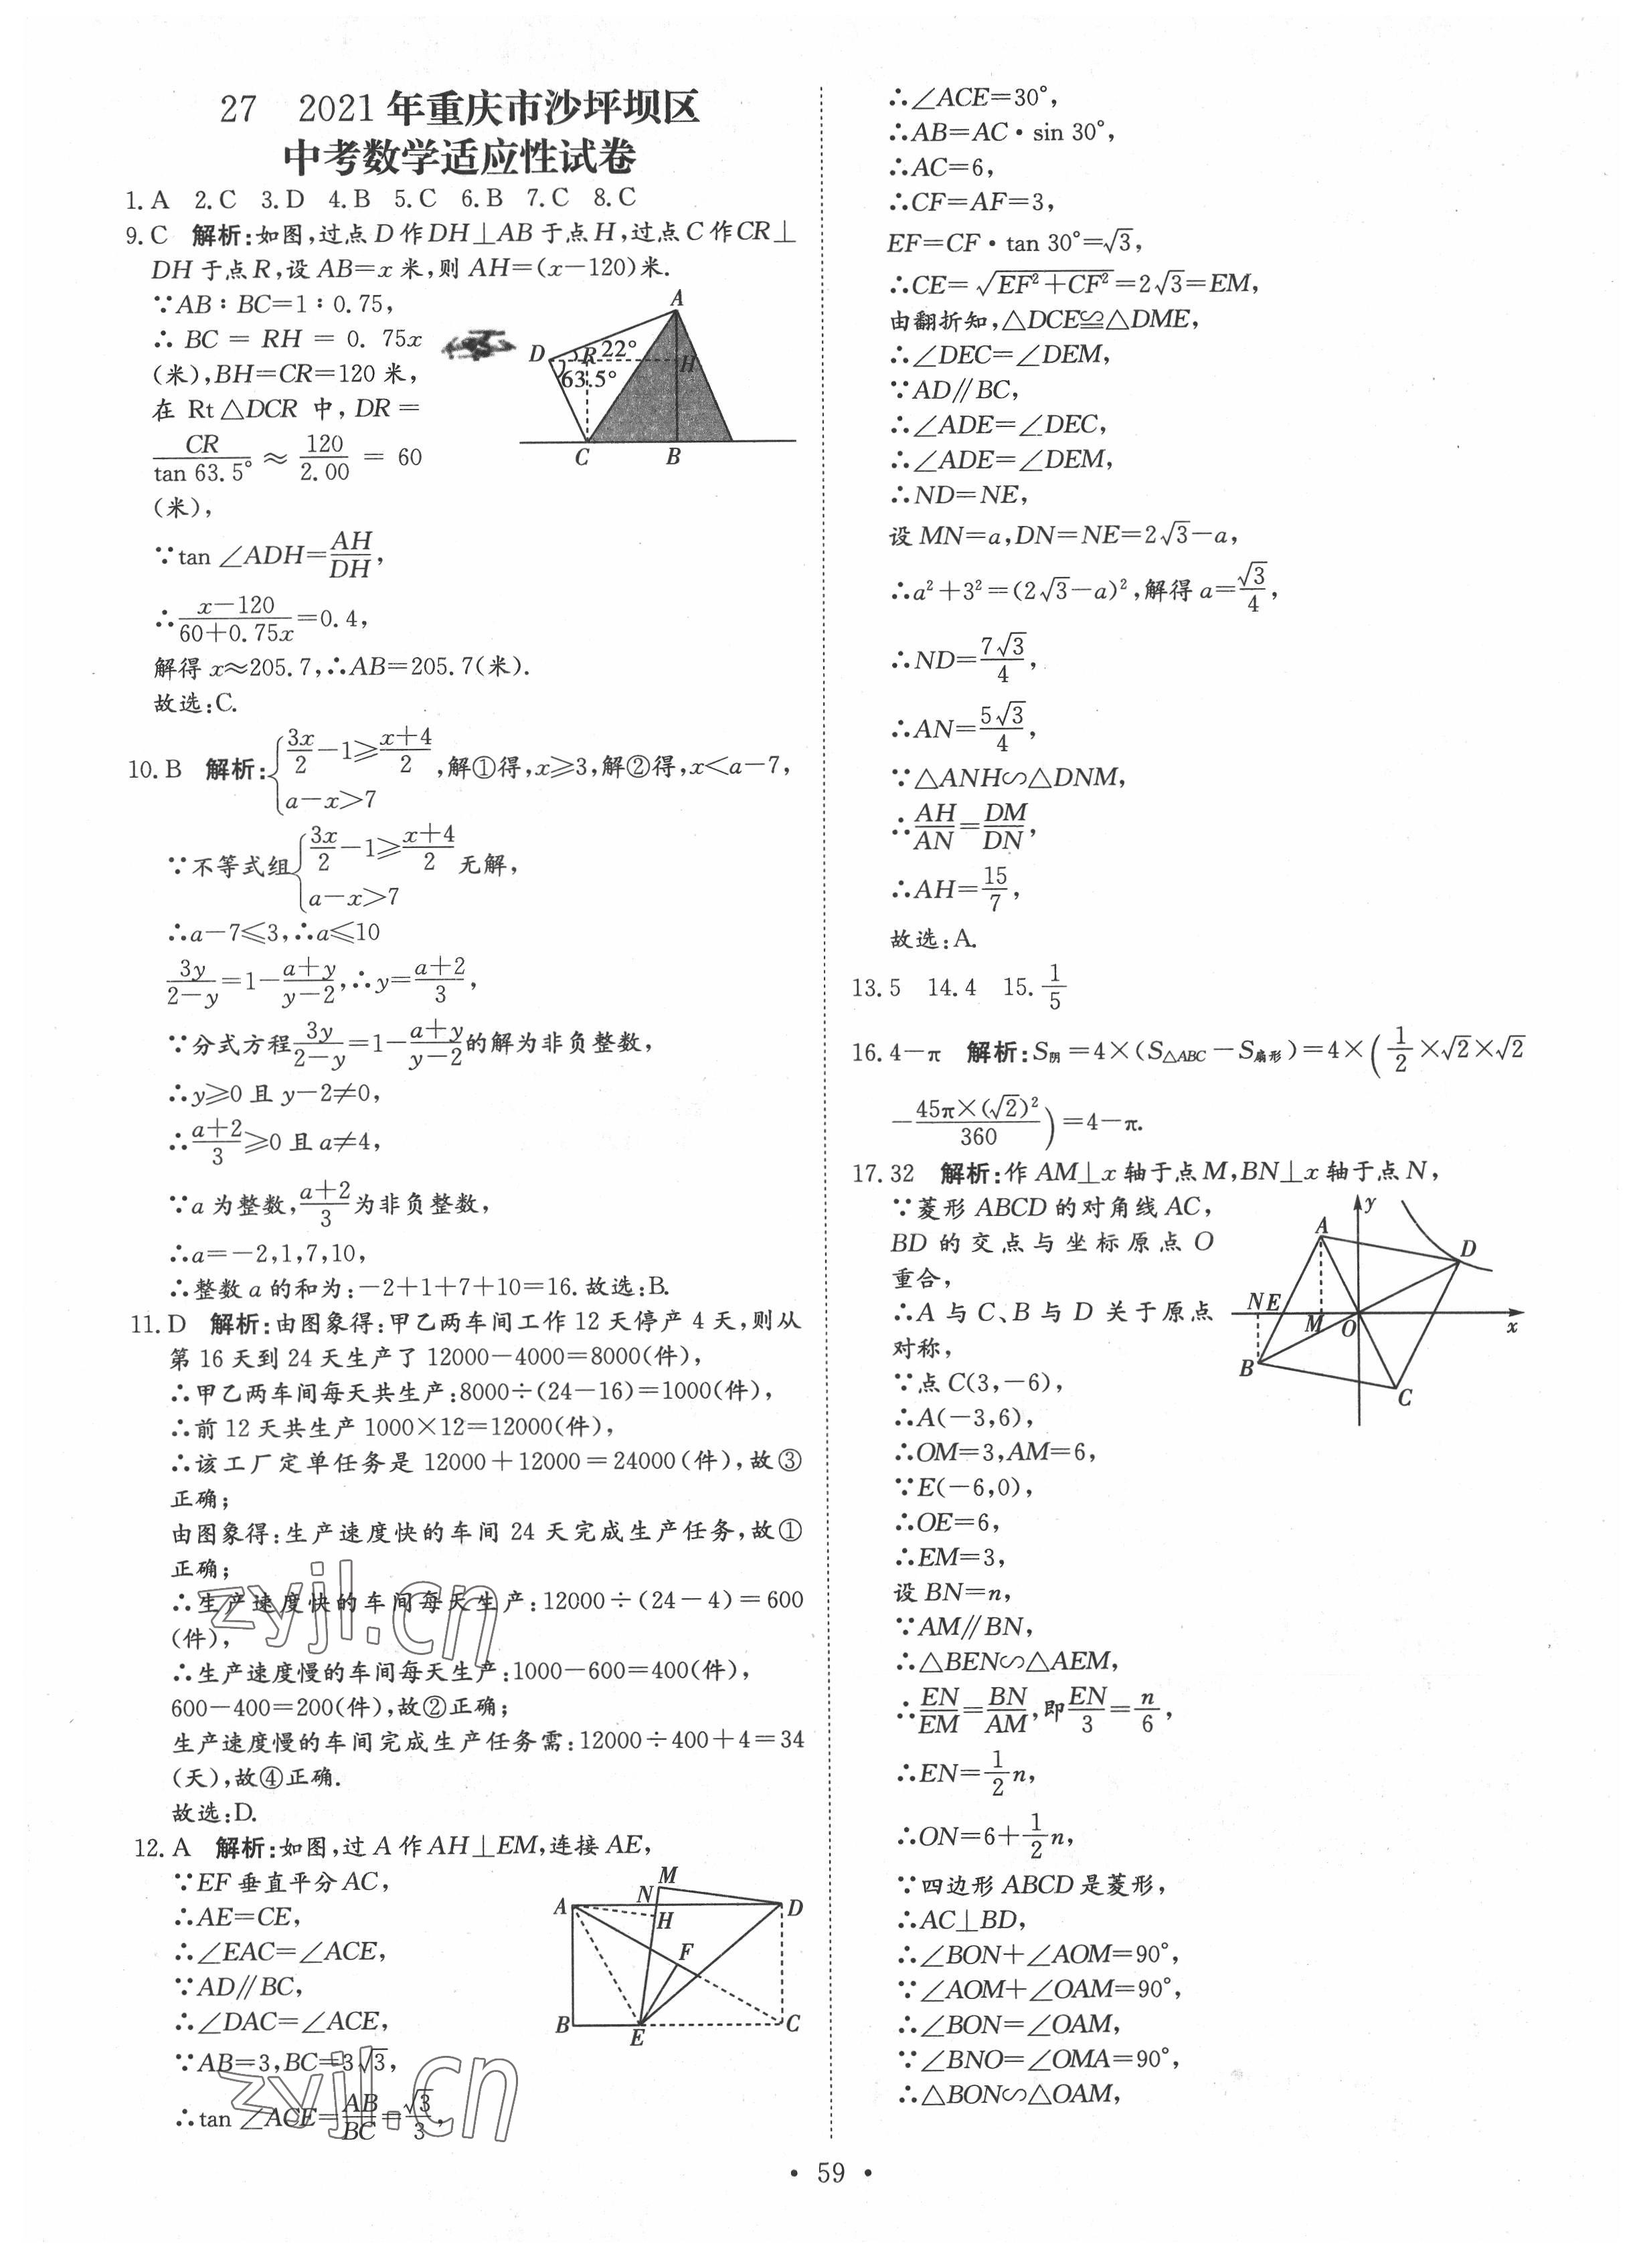 27 2021年重庆市沙坪坝区
中考数学适应性试卷
1. A 2. C 3. D 4. B 5. C 6. B 7. C 8. C
9. C 解析:如图,过点D作DH⊥AB于点H,过点C作CR⊥
DH于点R,设AB=x米,则AH=(x-120)米.
∵AB∶BC=1∶0.75,
∴BC=RH=0.75x
(米),BH=CR=120米,
在Rt△DCR中,DR=
CR/tan 63.5°≈120/2.00=60
(米),
∵tan∠ADH=AH/DH,
∴(x-120)/(60+0.75x)=0.4,
解得x≈205.7,∴AB=205.7(米).
故选:C.
A
D R 22° H
63.5°
C B
10. B 解析:{3x/2-1≥(x+4)/2, a-x>7,解①得,x≥3,解②得,x<a-7,
∵不等式组{3x/2-1≥(x+4)/2, a-x>7无解,
∴a-7≤3,∴a≤10
3y/(2-y)=1-(a+y)/(y-2),∴y=(a+2)/3,
∵分式方程3y/(2-y)=1-(a+y)/(y-2)的解为非负整数,
∴y≥0且y-2≠0,
∴(a+2)/3≥0且a≠4,
∵a为整数,(a+2)/3为非负整数,
∴a=-2,1,7,10,
∴整数a的和为:-2+1+7+10=16.故选:B.
11. D 解析:由图象得:甲乙两车间工作12天停产4天,则从
第16天到24天生产了12000-4000=8000(件),
∴甲乙两车间每天共生产:8000÷(24-16)=1000(件),
∴前12天共生产1000×12=12000(件),
∴该工厂定单任务是12000+12000=24000(件),故③
正确;
由图象得:生产速度快的车间24天完成生产任务,故①
正确;
∴生产速度快的车间每天生产:12000÷(24-4)=600
(件),
∴生产速度慢的车间每天生产:1000-600=400(件),
600-400=200(件),故②正确;
生产速度慢的车间完成生产任务需:12000÷400+4=34
(天),故④正确.
故选:D.
12. A 解析:如图,过A作AH⊥EM,连接AE,
∵EF垂直平分AC,
∴AE=CE,
∴∠EAC=∠ACE,
∵AD∥BC,
∴∠DAC=∠ACE,
∵AB=3,BC=3√3,
∴tan∠ACE=AB/BC=√3/3,
M
A N D
H
F
B E C
zyjl.cn
zyjl.cn
∴∠ACE=30°,
∴AB=AC·sin 30°,
∴AC=6,
∴CF=AF=3,
EF=CF·tan 30°=√3,
∴CE=√(EF²+CF²)=2√3=EM,
由翻折知,△DCE≌△DME,
∴∠DEC=∠DEM,
∵AD∥BC,
∴∠ADE=∠DEC,
∴∠ADE=∠DEM,
∴ND=NE,
设MN=a,DN=NE=2√3-a,
∴a²+3²=(2√3-a)²,解得a=√3/4,
∴ND=7√3/4,
∴AN=5√3/4,
∵△ANH∽△DNM,
∴AH/AN=DM/DN,
∴AH=15/7,
故选:A.
13. 5 14. 4 15. 1/5
16. 4-π 解析:S阴=4×(S△ABC-S扇形)=4×(1/2×√2×√2
-45π×(√2)²/360)=4-π.
17. 32 解析:作AM⊥x轴于点M,BN⊥x轴于点N,
∵菱形ABCD的对角线AC,
BD的交点与坐标原点O
重合,
∴A与C、B与D关于原点
对称,
∵点C(3,-6),
∴A(-3,6),
∴OM=3,AM=6,
∵E(-6,0),
∴OE=6,
∴EM=3,
设BN=n,
∵AM∥BN,
∴△BEN∽△AEM,
∴EN/EM=BN/AM,即EN/3=n/6,
∴EN=1/2n,
∴ON=6+1/2n,
∵四边形ABCD是菱形,
∴AC⊥BD,
∴∠BON+∠AOM=90°,
∵∠AOM+∠OAM=90°,
∴∠BON=∠OAM,
∵∠BNO=∠OMA=90°,
∴△BON∽△OAM,
y
A D
N E M O x
B C
• 59 •